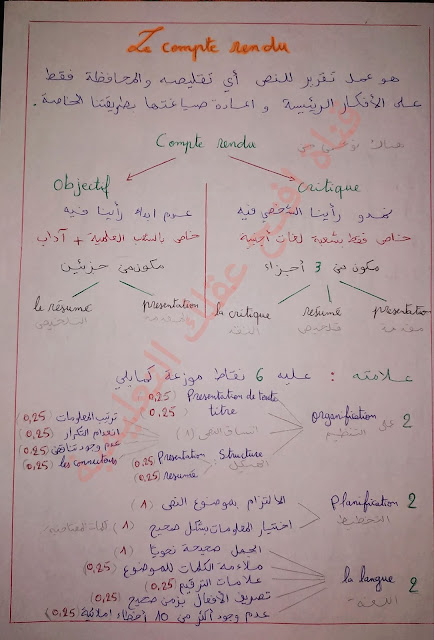 Le compte rendu
هو عمل تقرير للنص أي تقليصه والمحافظة فقط
على الأفكار الرئيسية و إعادة صياغتها بطريقتنا الخاصة .
Compte rendu
هناك نوعين من
Objectif
critique
عدم ابداء رأينا فيه
نبدو رأينا الشخصي فيه
خاص بالشعب العلمية + آداب
خاص فقط شعبة لغات أجنبية
مكون من جزئين
مكون من 3 أجزاء
le résumé
presentation
la critique
resumé
presentation
التلخيص
المقدمة
النقد
تلخيص
مقدمة
علامته : عليه 6 نقاط موزعة كمايلي
organisation 2
على التنظيم
(0,25) Presentation de texte
(0,25) titre
اتساق النص (1)
ترتيب المعلومات (0,25)
انعدام التكرار (0,25)
عدم وجود تناقض (0,25)
les connecteurs (0,25)
Structure
الهيكل
(0,25) Presentation
(0,25) resumé
planification 2
التخطيط
الالتزام بموضوع النص (1)
اختيار المعلومات بشكل صحيح (1)
la langue 2
اللغة
الجمل صحيحة نحويا (1)
ملاءمة الكلمات للموضوع (0,25)
علامات الترقيم (0,25)
تصريف الأفعال بزمن صحيح (0,25)
عدم وجود أكثر من 10 أخطاء املائية (0,25)